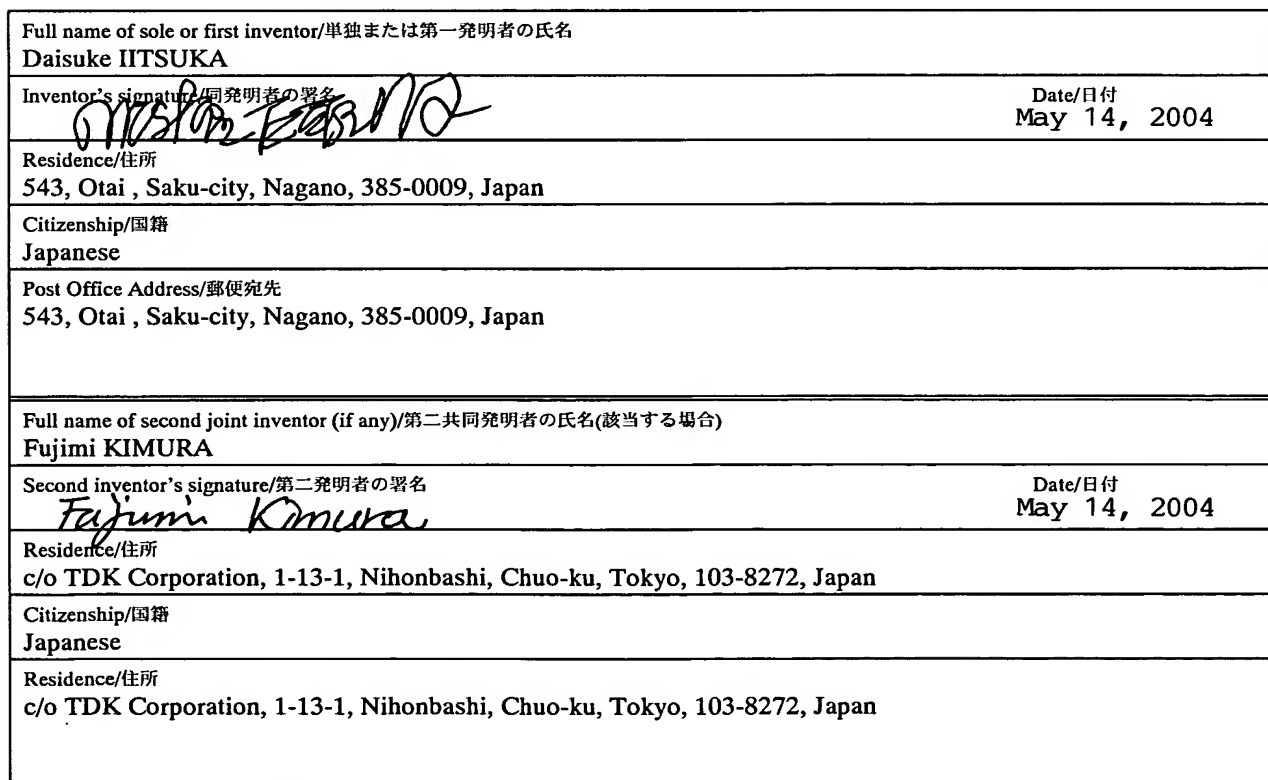 Full name of sole or first inventor/単独または第一発明者の氏名
Daisuke IITSUKA
Inventor's signature/同発明者の署名
Date/日付
May 14, 2004
Residence/住所
543, Otai , Saku-city, Nagano, 385-0009, Japan
Citizenship/国籍
Japanese
Post Office Address/郵便宛先
543, Otai , Saku-city, Nagano, 385-0009, Japan
Full name of second joint inventor (if any)/第二共同発明者の氏名(該当する場合)
Fujimi KIMURA
Second inventor's signature/第二発明者の署名
Date/日付
Fujimi Kimura
May 14, 2004
Residence/住所
c/o TDK Corporation, 1-13-1, Nihonbashi, Chuo-ku, Tokyo, 103-8272, Japan
Citizenship/国籍
Japanese
Residence/住所
c/o TDK Corporation, 1-13-1, Nihonbashi, Chuo-ku, Tokyo, 103-8272, Japan